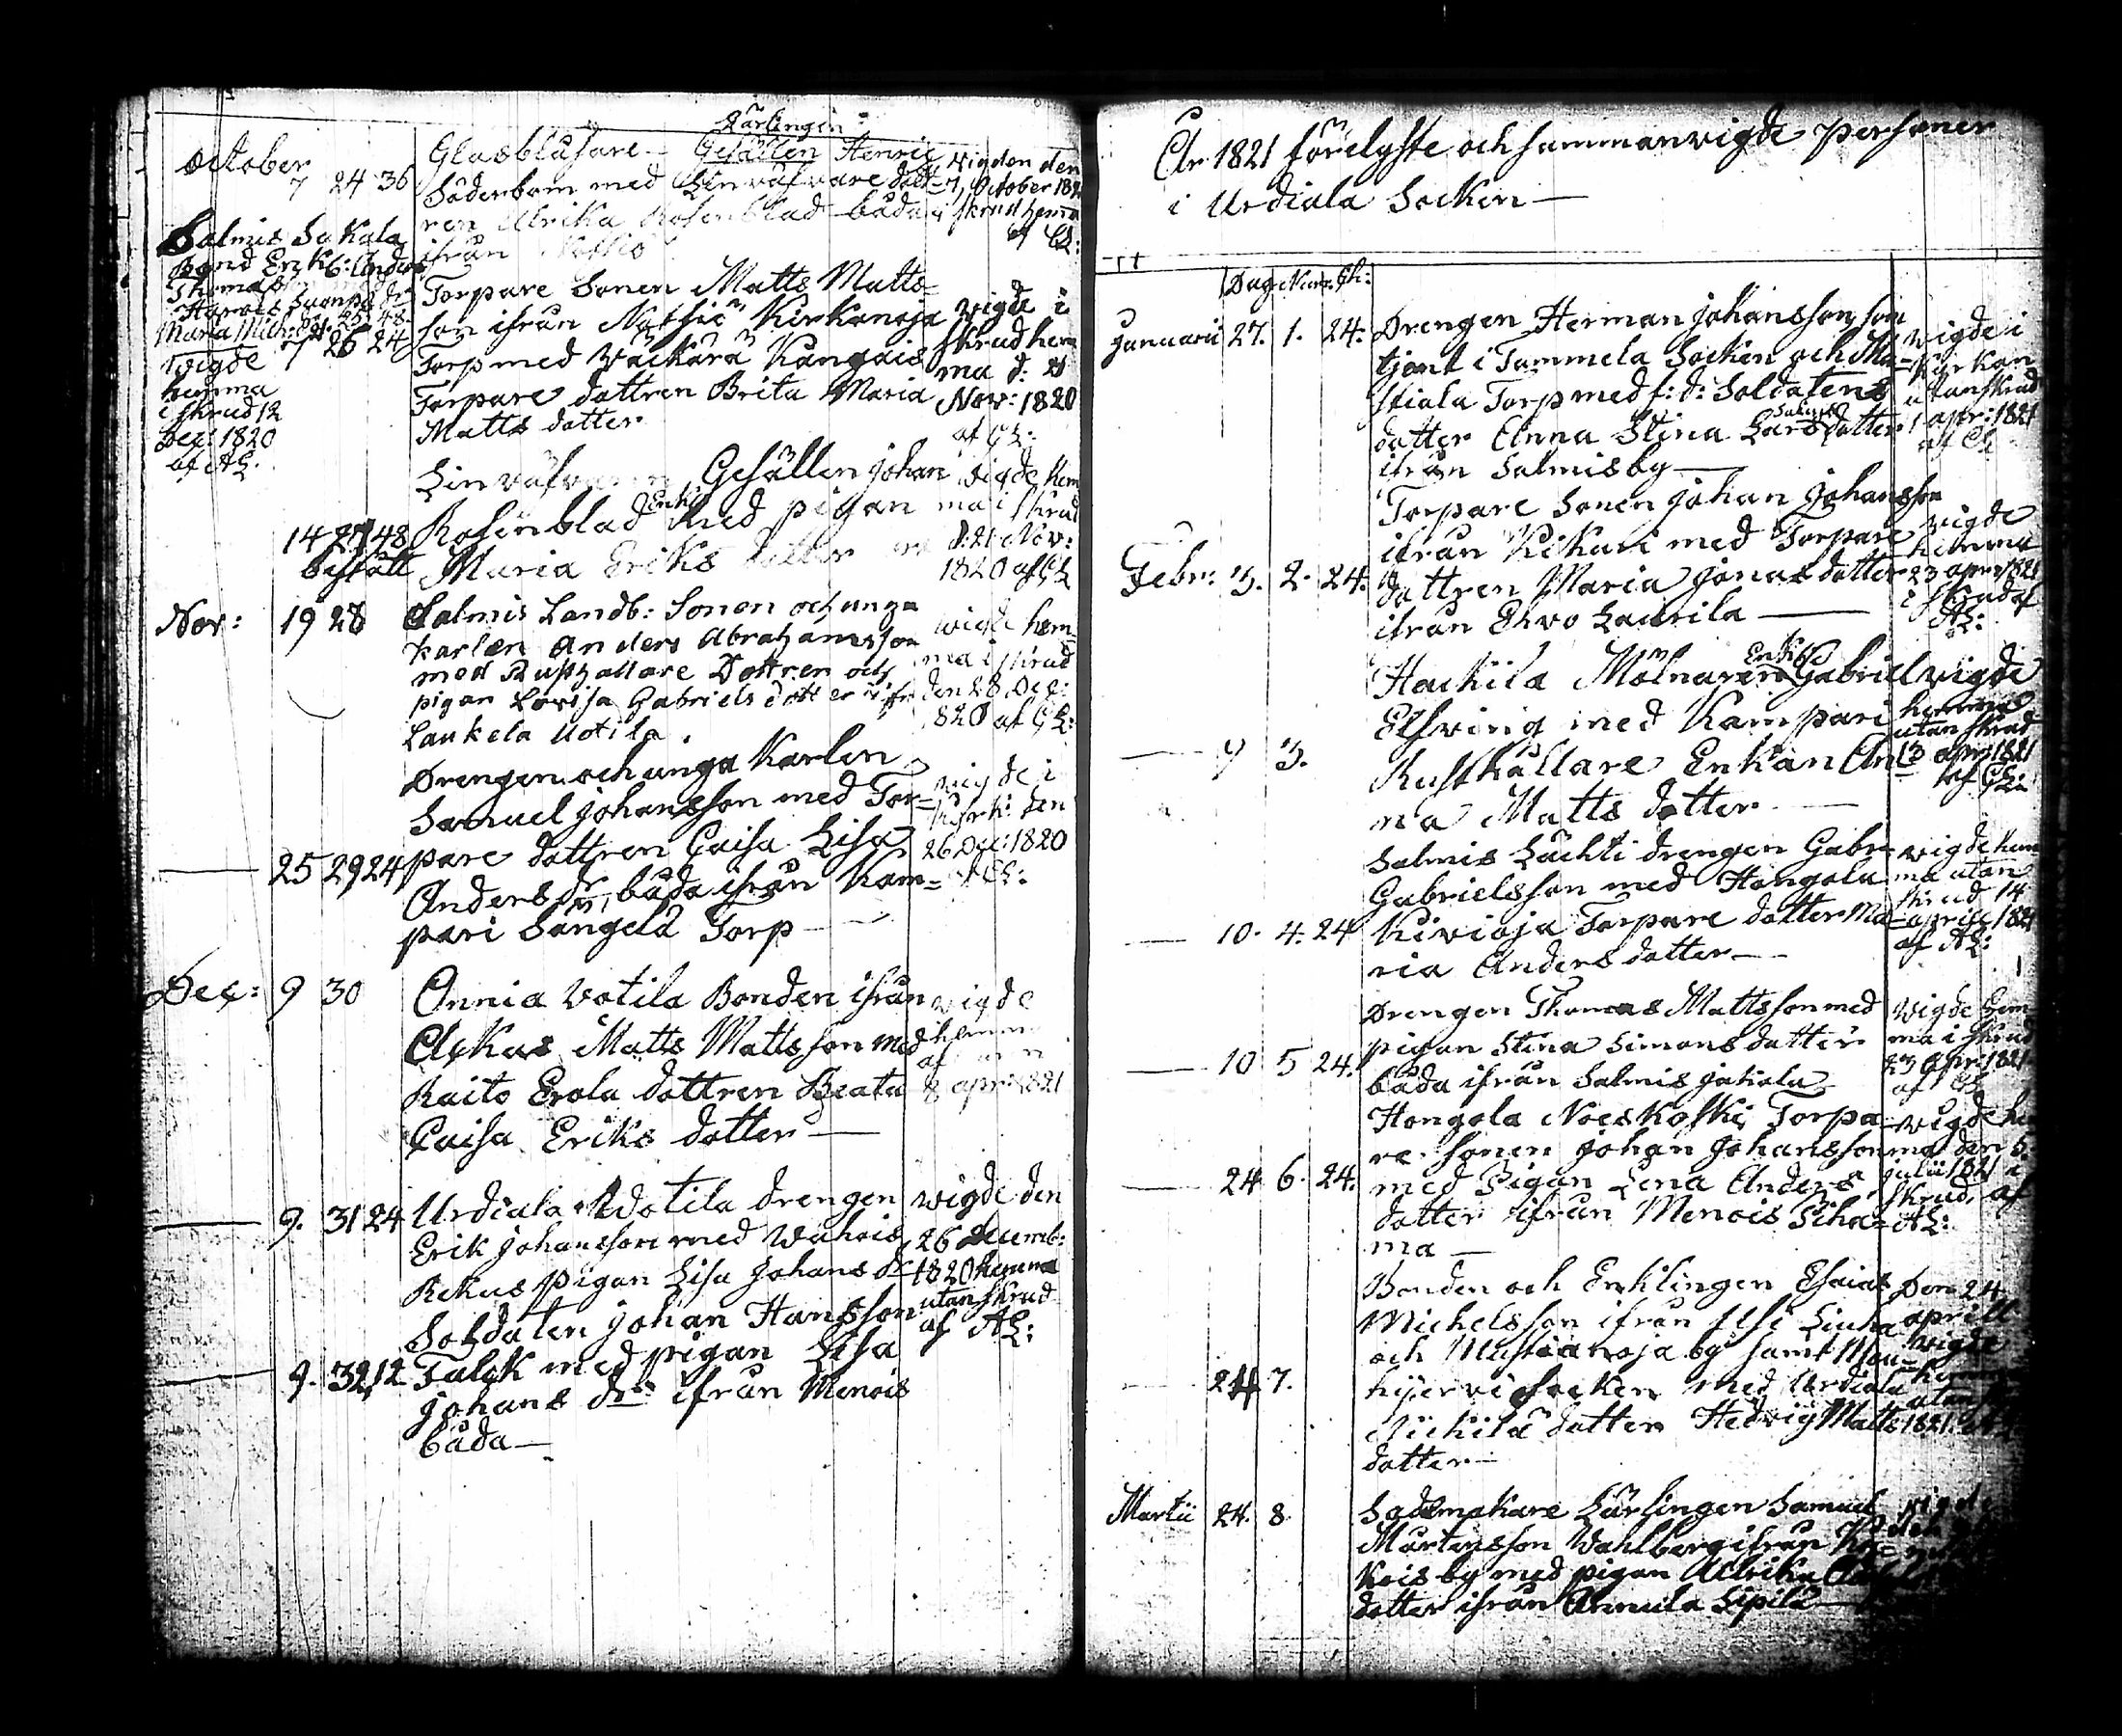 Lärlingen
October
7 24 36
Glasblåsare Gesällen Henric
Söderbom med Linväfvare dott=
ren Ulrika Rosenblad båda
ifrån
Vigden den
7 October 182
i skrud hemma
af GL:
Salmis Sakala
Bond Enk: Anders
Thomas
Honois
Maria Mich: dr. 25. 48.
7 26 24
Torpare Sonen Matts Matts=
son ifrån Kirkanoja
Torp med Väckärä Kangais
Torpare dottren Brita Maria
Matts dotter
vigde i
skrud hem
ma d:
Nov: 1820
af GL:
Vigde
hemma
i skrud 12
Dec: 1820
af AL.
14 27 48
betalt
Linväfvaren Gesällen Johan
Rosenblad Enkl med pigan
Maria Eriks dotter
vigde hem
ma i skrud
d: 21 Nov:
1820 af GL
Nov: 19 28
Salmis Landb: Sonen och unga
karlen Anders Abrahamsson
med Rusthållare Dottren och
pigan Lovisa Gabriels dotter ifr
Laukela Uotila.
vigde hem=
ma i skrud
den 28 Dec:
1820 af GL:
25 29 24
Drengen och unga Karlen
Samuel Johansson med Tor=
pare dottren Caisa Lisa
Anders dr, båda ifrån Kam=
pari Sångelä Torp
vigde i
Kyrk: den
26 Dec: 1820
af GL:
Dec: 9 30
Onnia Votila Bonden ifrån
Matts Mattsson med
Raito Erola dottren Beata
Caisa Eriks dotter
vigde
hemma
af
8 apr: 1821
9. 31 24
Urdiala Uotila drengen
Erik Johansson med Wahois
Rekus pigan Lisa Johans dr
vigde den
26 Decemb:
1820 hemma
utan skrud
af AL:
9. 32 12
Soldaten Johan Hansson
Falck med pigan Lisa
Johans dr ifrån Menois
båda
År 1821 förelyste och sammanvigde Personer
i Urdiala Socken
Dag Num: Sk:
Januarii 27. 1. 24.
Drengen Herman Johansson, som
tjent i Tammela Socken och Mu=
stiala Torp med f: d: Soldatens
dotter Anna Stina Lars dotter
ifrån Salmis by
vigde i
Kyrkan
utan skrud
1 apr: 1821
af GL
Febr: 3. 2. 24.
Torpare Sonen Johan Johansson
ifrån Kikuri med Torpare
dottren Maria Jonas dotter
ifrån Ehvo Laurila
vigde
hemma
23 apr: 1821
i skrud af
AL:
9 3.
Hackila Mölnaren Enkl: Gabriel
Elfving med Kampari
Rusthållare Enkan An=
na Matts dotter
vigde
hemma
utan skrud
13 apr: 1821
af GL:
10. 4. 24
Salmis Lächti drengen Gabr:
Gabrielsson med Hongola
Kivioja Torpare dotter Ma=
ria Anders dotter
vigde hem
ma utan
skrud 14
april 1821
af AL:
10 5 24.
Drengen Thomas Mattsson med
pigan Stina Simons dotter
båda ifrån Salmis Jakala
vigde hem
ma i skrud
23 Apr: 1821
af GL
24 6. 24.
Hongola Noeskoski Torpa=
re sonen Johan Johansson
med Pigan Lena Anders
dotter ifrån Menois Piha=
ma
vigde he
ma den 5
julii 1821 i
skrud, af
AL:
24 7.
Bonden och Enklingen Esaias
Michelsson ifrån
och Mustianoja by samt Mou=
hijervi Socken med Urdiala
dotter Hedvig Matts
dotter
Den 24
aprill
vigde
1821.
Martii 24. 8
Sadelmakare Lärlingen Samuel
Mårtensson Wahlberg ifrån
kois by med pigan Ullrika
dotter ifrån Annula Sipilä